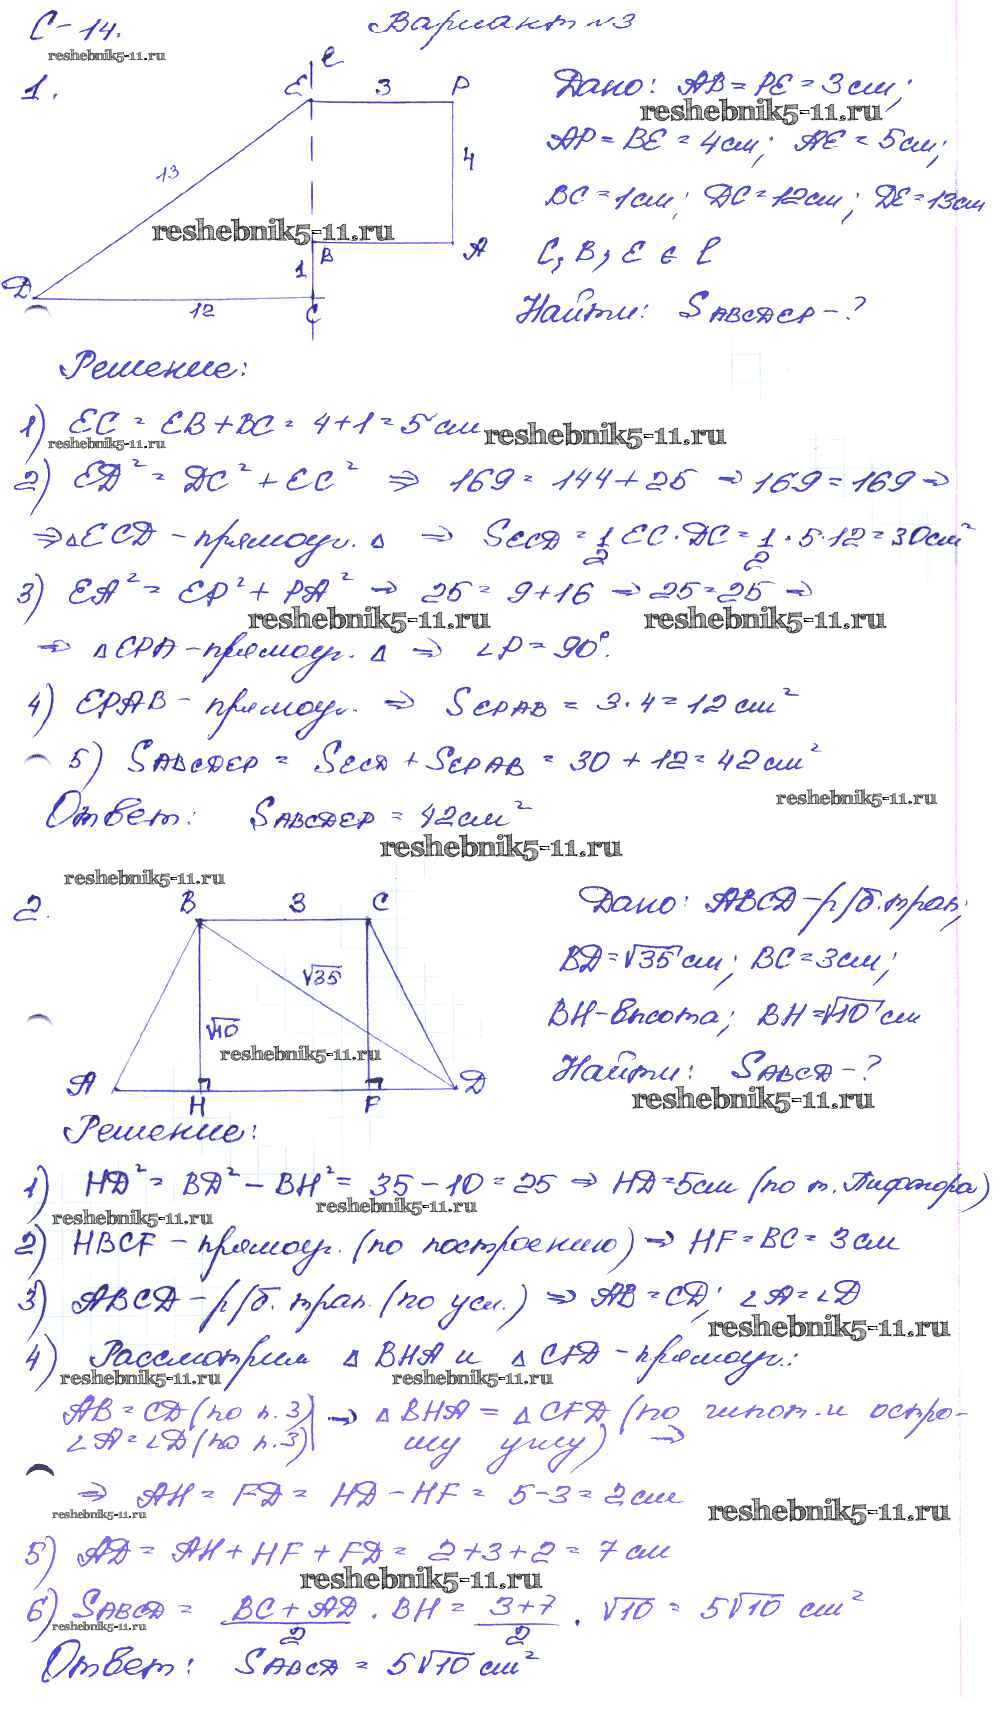 С-14. Вариант №3
reshebnik5-11.ru
1.
E ℓ 3 P
13 4
reshebnik5-11.ru
B A
1
D 12 C
Дано: AB = PE = 3 см;
reshebnik5-11.ru
AP = BE = 4 см; AE = 5 см;
BC = 1 см; DC = 12 см; DE = 13 см
C, B, E ∈ ℓ
Найти: S ABCDEP - ?
Решение:
1) EC = EB + BC = 4 + 1 = 5 см
reshebnik5-11.ru reshebnik5-11.ru
2) ED² = DC² + EC² ⇒ 169 = 144 + 25 ⇒ 169 = 169 ⇒
⇒ △ECD - прямоуг. △ ⇒ S ECD = 1/2 EC · DC = 1/2 · 5 · 12 = 30 см²
3) EA² = EP² + PA² ⇒ 25 = 9 + 16 ⇒ 25 = 25 ⇒
reshebnik5-11.ru reshebnik5-11.ru
⇒ △EPA - прямоуг. △ ⇒ ∠P = 90°.
4) EPAB - прямоуг. ⇒ S EPAB = 3 · 4 = 12 см²
5) S ABCDEP = S ECD + S EPAB = 30 + 12 = 42 см²
reshebnik5-11.ru
Ответ: S ABCDEP = 42 см²
reshebnik5-11.ru
reshebnik5-11.ru
2.
B 3 C
√35
√10
reshebnik5-11.ru
A H F D
Дано: ABCD - р/б. трап;
BD = √35 см; BC = 3 см;
BH - высота; BH = √10 см
Найти: S ABCD - ?
reshebnik5-11.ru
Решение:
1) HD² = BD² - BH² = 35 - 10 = 25 ⇒ HD = 5 см (по т. Пифагора)
reshebnik5-11.ru reshebnik5-11.ru
2) HBCF - прямоуг. (по построению) ⇒ HF = BC = 3 см
3) ABCD - р/б. трап. (по усл.) ⇒ AB = CD; ∠A = ∠D
reshebnik5-11.ru
4) Рассмотрим △ BHA и △ CFD - прямоуг.:
reshebnik5-11.ru reshebnik5-11.ru
AB = CD (по п. 3) ⇒ △ BHA = △ CFD (по гипот. и остро-
∠A = ∠D (по п. 3) му углу) ⇒
⇒ AH = FD = HD - HF = 5 - 3 = 2 см
reshebnik5-11.ru reshebnik5-11.ru
5) AD = AH + HF + FD = 2 + 3 + 2 = 7 см
reshebnik5-11.ru
6) S ABCD = BC + AD / 2 · BH = 3 + 7 / 2 · √10 = 5√10 см²
reshebnik5-11.ru
Ответ: S ABCD = 5√10 см²